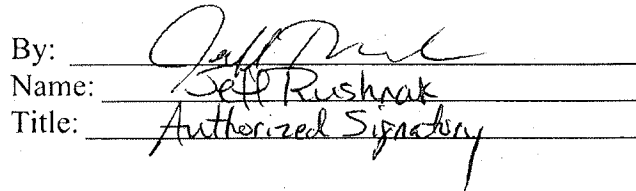 By:
Name: Jeff Rushnak
Title: Authorized Signatory